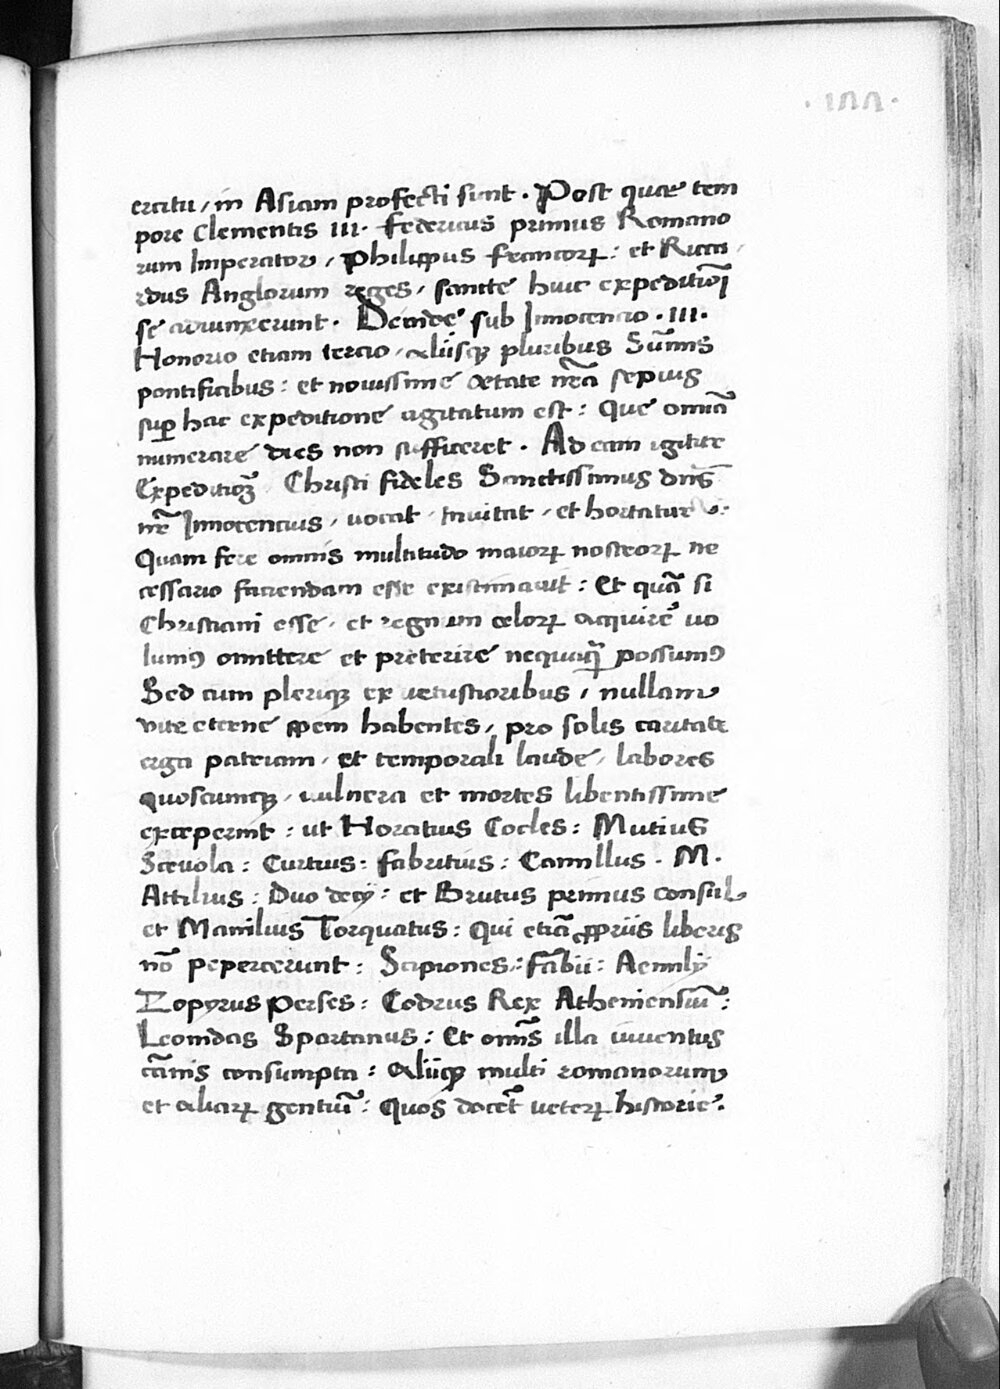 ·177·
ercitu, in Asiam profecti sunt. Post quae tem
pore Clementis III. Federicus primus Romano
rum Imperator, Philippus francorꝝ: et Ricca
rdus Anglorum reges, sancte huic expeditiōī
se adiunxerunt. Deinde sub Innocencio .III.
Honorio etiam tercio, aliisqꝫ pluribus Sūmis
pontificibus: et nouissime aetate nrā sepius
suꝑ hac expeditione agitatum est: Que omīa
numerare dies non sufficeret. Ad eam igitur
Expeditioꝫ Christi fideles Sanctissimus dn̄s
nr̄ Innocencius, vocat, Inuitat, et hortatur:
Quam fere omnis multitudo maiorꝝ nostrorꝝ ne
cessario faciendam esse existimauit: Et quā si
Christiani esse, et regnum celorꝝ acquirē uo
lumꝰ omittere et preterire nequaꝙ̄ possumꝰ
Sed cum pleriqꝫ ex uetustioribus, nullam
vite eterne spem habentes, pro solis caritate
erga patriam, et temporali laude, labores
quoscumqꝫ, uulnera et mortes libentissime
exceperint: ut Horatius Cocles: Mutius
Sceuola: Curtius: fabritius: Camillus. M.
Attilius: Duo decij: et Brutus primus consul
et Manilius Torquatus: Qui etiā ꝓpriis liberis
nō pepercerunt: Scipiones: fabii: Aemilij
Zopyrus Perses: Codrus Rex Atheniensiū:
Leonidas Spartanus: Et omīs illa iuuentus
cānis consumpta: Aliiqꝫ multi romanorum
et aliarꝝ gentiū: Quos docēt ueterꝝ historie.